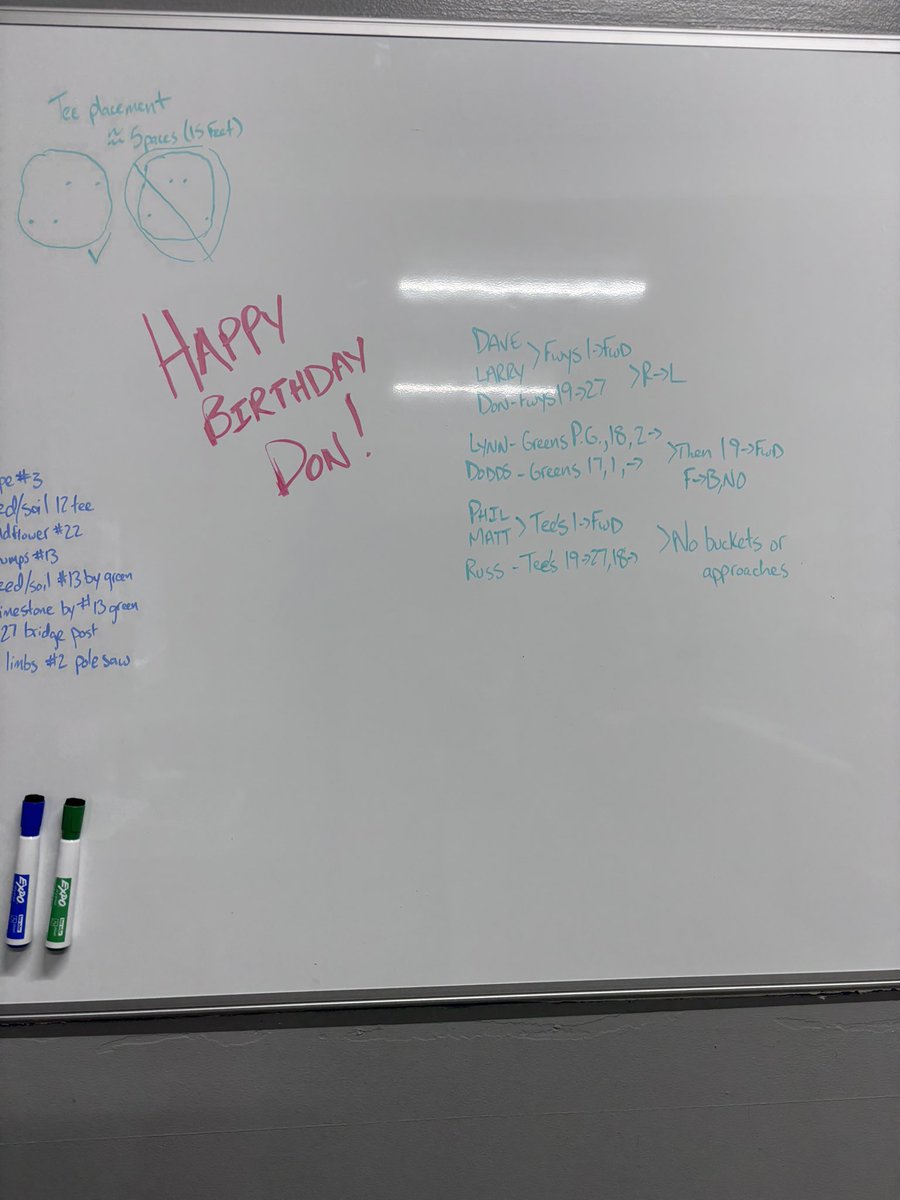 Tee placement
≈ 5 paces (15 feet)
HAPPY
BIRTHDAY
DON!
DAVE
LARRY > Fwys 1->FWD
DON-Fwys 19->27 >R->L
LYNN- Greens P.G., 18, 2->
DODDS - Greens 17, 1, -> >Then 19->FWD
F->B, NO
PHIL
MATT > Tee's 1->FWD
RUSS - Tee's 19->27, 18-> >No buckets or
approaches
pe #3
ed/soil 12 tee
dflower #22
umps #13
eed/soil #13 by green
mestone by #13 green
27 bridge post
limbs #2 pole saw
EXPO
EXPO